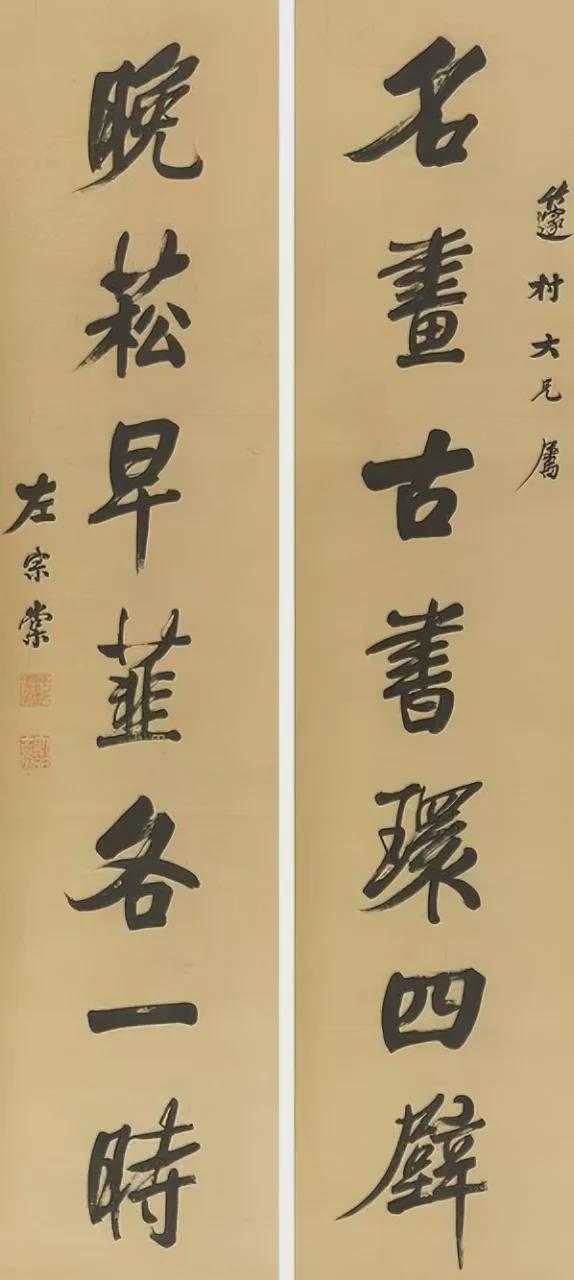 籧村大兄屬
名畫古書環四壁
晚菘早韮各一時
左宗棠